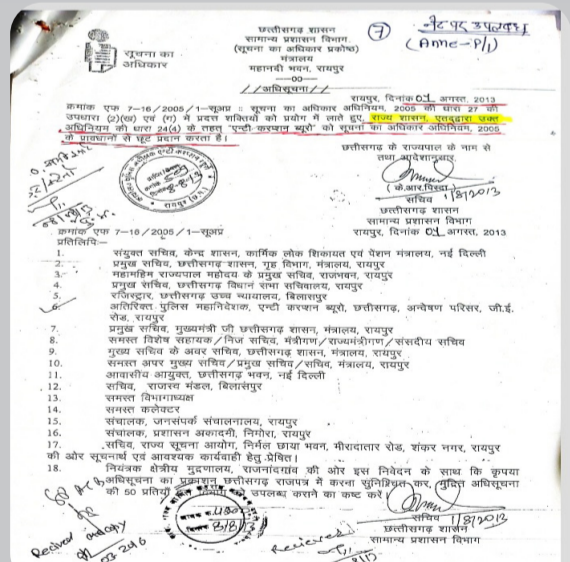 सूचना का
अधिकार
छत्तीसगढ़ शासन
सामान्य प्रशासन विभाग
(सूचना का अधिकार प्रकोष्ठ)
मंत्रालय
महानदी भवन, रायपुर
—00—
7
नेट पर उपलब्ध
(Anne-P/1)
//अधिसूचना//
रायपुर, दिनांक 01 अगस्त, 2013
क्रमांक एफ 7-16/2005/1-सूअप्र :: सूचना का अधिकार अधिनियम, 2005 की धारा 27 की
उपधारा (2)(ख) एवं (ग) में प्रदत्त शक्तियों को प्रयोग में लाते हुए, राज्य शासन, एतद्द्वारा उक्त
अधिनियम की धारा 24(4) के तहत् 'एन्टी करप्शन ब्यूरो' को सूचना का अधिकार अधिनियम, 2005
के प्रावधानों से छूट प्रदान करता है।
छत्तीसगढ़ के राज्यपाल के नाम से
तथा आदेशानुसार,
(के.आर.पिस्दा)
1/8/2013
सचिव
छत्तीसगढ़ शासन
सामान्य प्रशासन विभाग
क्रमांक एफ 7-16/2005/1-सूअप्र
रायपुर, दिनांक 01 अगस्त, 2013
प्रतिलिपि:-
1. संयुक्त सचिव, केन्द्र शासन, कार्मिक लोक शिकायत एवं पेंशन मंत्रालय, नई दिल्ली
2. प्रमुख सचिव, छत्तीसगढ़ शासन, गृह विभाग, मंत्रालय, रायपुर
3. महामहिम राज्यपाल महोदय के प्रमुख सचिव, राजभवन, रायपुर
4. प्रमुख सचिव, छत्तीसगढ़ विधान सभा सचिवालय, रायपुर
5. रजिस्ट्रार, छत्तीसगढ़ उच्च न्यायालय, बिलासपुर
6. अतिरिक्त पुलिस महानिदेशक, एन्टी करप्शन ब्यूरो, छत्तीसगढ़, अन्वेषण परिसर, जी.ई.
रोड, रायपुर
7. प्रमुख सचिव, मुख्यमंत्री जी छत्तीसगढ़ शासन, मंत्रालय, रायपुर
8. समस्त विशेष सहायक/निज सचिव, मंत्रीगण/राज्यमंत्रीगण/संसदीय सचिव
9. मुख्य सचिव के अवर सचिव, छत्तीसगढ़ शासन, मंत्रालय, रायपुर
10. समस्त अपर मुख्य सचिव/प्रमुख सचिव/सचिव, मंत्रालय, रायपुर
11. आवासीय आयुक्त, छत्तीसगढ़ भवन, नई दिल्ली
12. सचिव, राजस्व मंडल, बिलासपुर
13. समस्त विभागाध्यक्ष
14. समस्त कलेक्टर
15. संचालक, जनसंपर्क संचालनालय, रायपुर
16. संचालक, प्रशासन अकादमी, निमोरा, रायपुर
17. सचिव, राज्य सूचना आयोग, निर्मल छाया भवन, मीरादातार रोड, शंकर नगर, रायपुर
की ओर सूचनार्थ एवं आवश्यक कार्यवाही हेतु प्रेषित।
18. नियंत्रक क्षेत्रीय मुद्रणालय, राजनांदगांव की ओर इस निवेदन के साथ कि कृपया
अधिसूचना का प्रकाशन छत्तीसगढ़ राजपत्र में करना सुनिश्चित कर, मुद्रित अधिसूचना
की 50 प्रतियां विभाग को उपलब्ध कराने का कष्ट करें।
सचिव 1/8/2013
छत्तीसगढ़ शासन
सामान्य प्रशासन विभाग
8/8/13